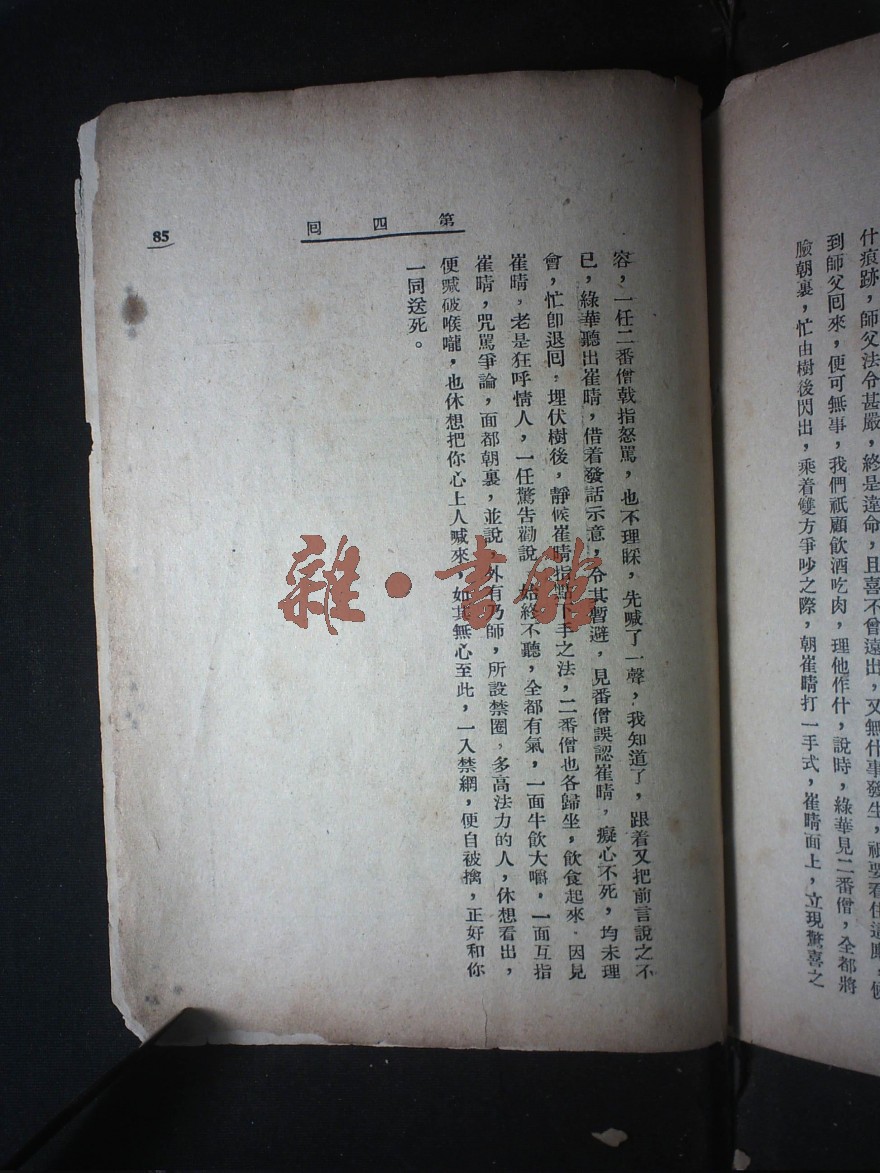 什痕跡，師父法令甚嚴，終是違命，且喜不曾遠出，又無什事發生，祇要看住這廝，候
到師父回來，便可無事，我們祇顧飲酒吃肉，理他作什，說時，綠華見二番僧，全都將
臉朝裏，忙由樹後閃出，乘着雙方爭吵之際，朝崔晴打一手式，崔晴面上，立現驚喜之
第四回
85
容，一任二番僧戟指怒罵，也不理睬，先喊了一聲，我知道了，跟着又把前言說之不
已，綠華聽出崔晴，借着發話示意，令其暫避，見番僧誤認崔晴，癡心不死，均未理
會，忙卽退回，埋伏樹後，靜候崔晴指點下手之法，二番僧也各歸坐，飲食起來，因見
崔晴，老是狂呼情人，一任驚告勸說，始終不聽，全都有氣，一面牛飲大嚼，一面互指
崔晴，咒罵爭論，面都朝裏，並說，外有乃師，所設禁圈，多高法力的人，休想看出，
便喊破喉嚨，也休想把你心上人喊來，如其無心至此，一入禁網，便自被擒，正好和你
一同送死。
雜·書館